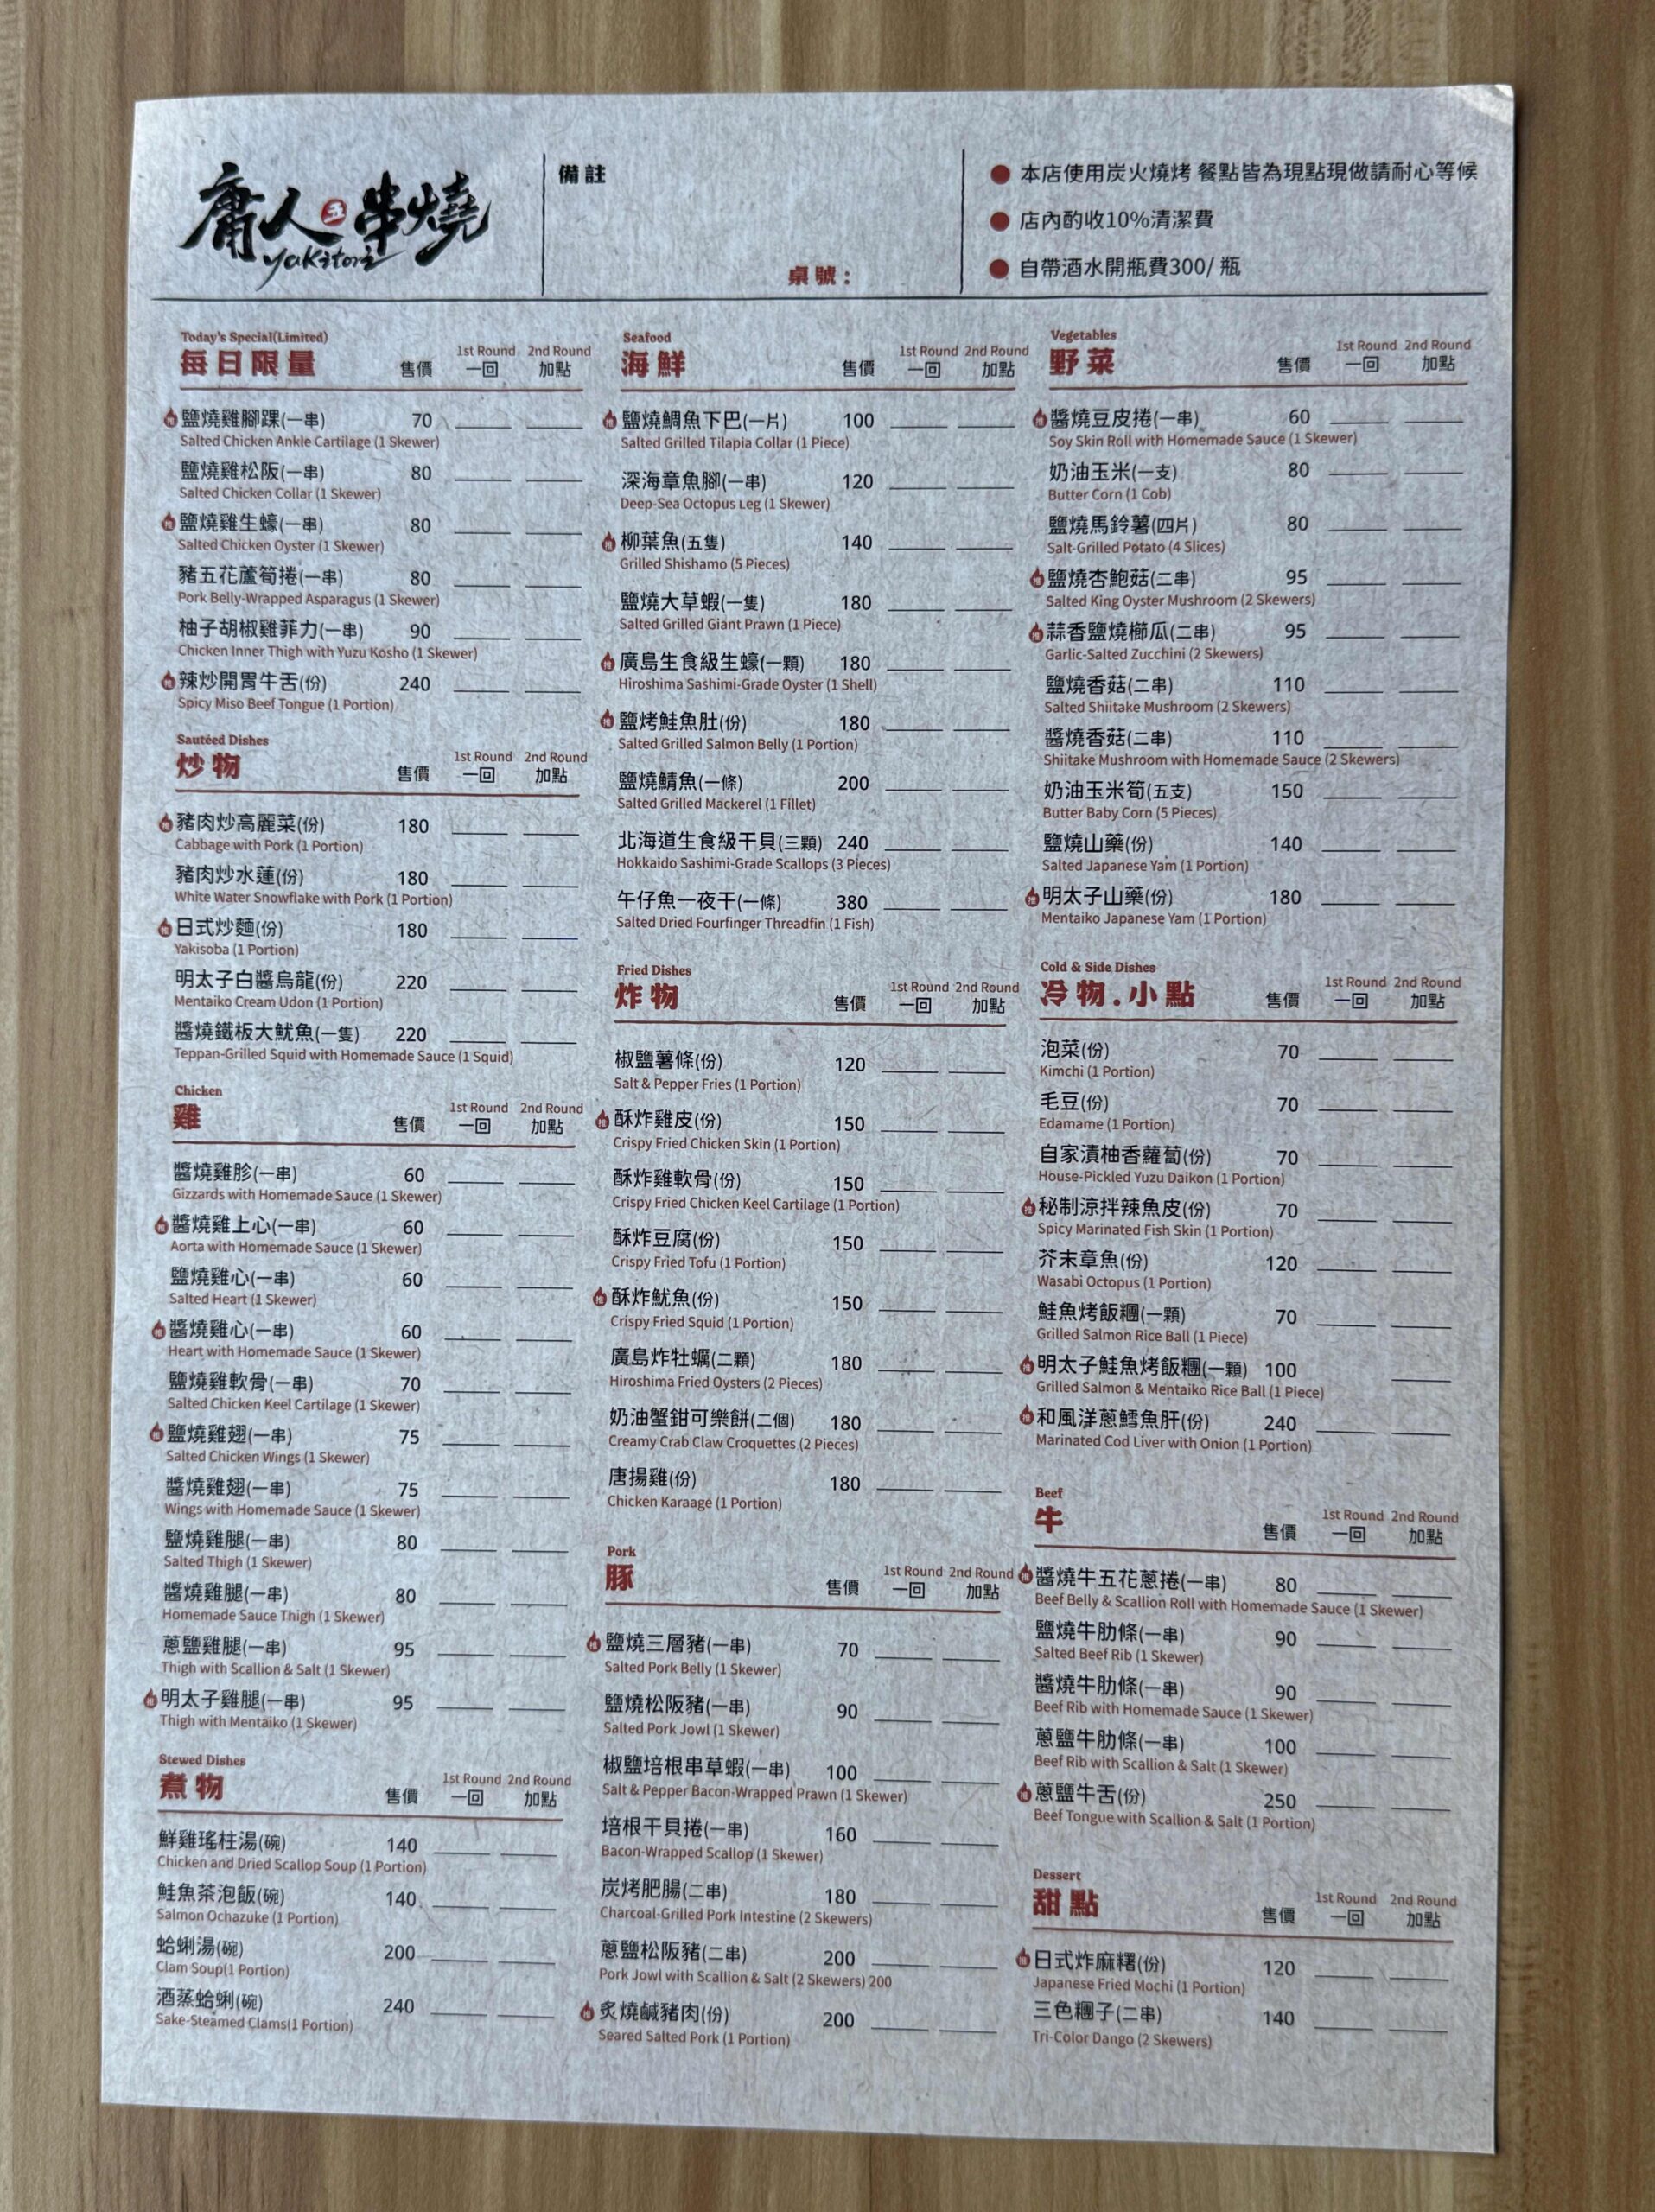 庸人五串燒
yakitori
備註
桌號：
本店使用炭火燒烤 餐點皆為現點現做請耐心等候
店內酌收10%清潔費
自帶酒水開瓶費300/ 瓶
Today's Special(Limited)
每日限量 售價 1st Round 一回 2nd Round 加點
推 鹽燒雞腳踝(一串) 70
Salted Chicken Ankle Cartilage (1 Skewer)
鹽燒雞松阪(一串) 80
Salted Chicken Collar (1 Skewer)
推 鹽燒雞生蠔(一串) 80
Salted Chicken Oyster (1 Skewer)
豬五花蘆筍捲(一串) 80
Pork Belly-Wrapped Asparagus (1 Skewer)
柚子胡椒雞菲力(一串) 90
Chicken Inner Thigh with Yuzu Kosho (1 Skewer)
推 辣炒開胃牛舌(份) 240
Spicy Miso Beef Tongue (1 Portion)
Sautéed Dishes
炒物 售價 1st Round 一回 2nd Round 加點
推 豬肉炒高麗菜(份) 180
Cabbage with Pork (1 Portion)
豬肉炒水蓮(份) 180
White Water Snowflake with Pork (1 Portion)
推 日式炒麵(份) 180
Yakisoba (1 Portion)
明太子白醬烏龍(份) 220
Mentaiko Cream Udon (1 Portion)
醬燒鐵板大魷魚(一隻) 220
Teppan-Grilled Squid with Homemade Sauce (1 Squid)
Chicken
雞 售價 1st Round 一回 2nd Round 加點
醬燒雞胗(一串) 60
Gizzards with Homemade Sauce (1 Skewer)
推 醬燒雞上心(一串) 60
Aorta with Homemade Sauce (1 Skewer)
鹽燒雞心(一串) 60
Salted Heart (1 Skewer)
推 醬燒雞心(一串) 60
Heart with Homemade Sauce (1 Skewer)
鹽燒雞軟骨(一串) 70
Salted Chicken Keel Cartilage (1 Skewer)
推 鹽燒雞翅(一串) 75
Salted Chicken Wings (1 Skewer)
醬燒雞翅(一串) 75
Wings with Homemade Sauce (1 Skewer)
鹽燒雞腿(一串) 80
Salted Thigh (1 Skewer)
醬燒雞腿(一串) 80
Homemade Sauce Thigh (1 Skewer)
蔥鹽雞腿(一串) 95
Thigh with Scallion & Salt (1 Skewer)
推 明太子雞腿(一串) 95
Thigh with Mentaiko (1 Skewer)
Stewed Dishes
煮物 售價 1st Round 一回 2nd Round 加點
鮮雞瑤柱湯(碗) 140
Chicken and Dried Scallop Soup (1 Portion)
鮭魚茶泡飯(碗) 140
Salmon Ochazuke (1 Portion)
蛤蜊湯(碗) 200
Clam Soup(1 Portion)
酒蒸蛤蜊(碗) 240
Sake-Steamed Clams(1 Portion)
Seafood
海鮮 售價 1st Round 一回 2nd Round 加點
推 鹽燒鯛魚下巴(一片) 100
Salted Grilled Tilapia Collar (1 Piece)
深海章魚腳(一串) 120
Deep-Sea Octopus Leg (1 Skewer)
推 柳葉魚(五隻) 140
Grilled Shishamo (5 Pieces)
鹽燒大草蝦(一隻) 180
Salted Grilled Giant Prawn (1 Piece)
推 廣島生食級生蠔(一顆) 180
Hiroshima Sashimi-Grade Oyster (1 Shell)
推 鹽烤鮭魚肚(份) 180
Salted Grilled Salmon Belly (1 Portion)
鹽燒鯖魚(一條) 200
Salted Grilled Mackerel (1 Fillet)
北海道生食級干貝(三顆) 240
Hokkaido Sashimi-Grade Scallops (3 Pieces)
午仔魚一夜干(一條) 380
Salted Dried Fourfinger Threadfin (1 Fish)
Fried Dishes
炸物 售價 1st Round 一回 2nd Round 加點
椒鹽薯條(份) 120
Salt & Pepper Fries (1 Portion)
推 酥炸雞皮(份) 150
Crispy Fried Chicken Skin (1 Portion)
酥炸雞軟骨(份) 150
Crispy Fried Chicken Keel Cartilage (1 Portion)
酥炸豆腐(份) 150
Crispy Fried Tofu (1 Portion)
推 酥炸魷魚(份) 150
Crispy Fried Squid (1 Portion)
廣島炸牡蠣(二顆) 180
Hiroshima Fried Oysters (2 Pieces)
奶油蟹鉗可樂餅(二個) 180
Creamy Crab Claw Croquettes (2 Pieces)
唐揚雞(份) 180
Chicken Karaage (1 Portion)
Pork
豚 售價 1st Round 一回 2nd Round 加點
推 鹽燒三層豬(一串) 70
Salted Pork Belly (1 Skewer)
鹽燒松阪豬(一串) 90
Salted Pork Jowl (1 Skewer)
椒鹽培根串草蝦(一串) 100
Salt & Pepper Bacon-Wrapped Prawn (1 Skewer)
培根干貝捲(一串) 160
Bacon-Wrapped Scallop (1 Skewer)
炭烤肥腸(二串) 180
Charcoal-Grilled Pork Intestine (2 Skewers)
蔥鹽松阪豬(二串) 200
Pork Jowl with Scallion & Salt (2 Skewers) 200
推 炙燒鹹豬肉(份) 200
Seared Salted Pork (1 Portion)
Vegetables
野菜 售價 1st Round 一回 2nd Round 加點
推 醬燒豆皮捲(一串) 60
Soy Skin Roll with Homemade Sauce (1 Skewer)
奶油玉米(一支) 80
Butter Corn (1 Cob)
鹽燒馬鈴薯(四片) 80
Salt-Grilled Potato (4 Slices)
推 鹽燒杏鮑菇(二串) 95
Salted King Oyster Mushroom (2 Skewers)
推 蒜香鹽燒櫛瓜(二串) 95
Garlic-Salted Zucchini (2 Skewers)
鹽燒香菇(二串) 110
Salted Shiitake Mushroom (2 Skewers)
醬燒香菇(二串) 110
Shiitake Mushroom with Homemade Sauce (2 Skewers)
奶油玉米筍(五支) 150
Butter Baby Corn (5 Pieces)
鹽燒山藥(份) 140
Salted Japanese Yam (1 Portion)
推 明太子山藥(份) 180
Mentaiko Japanese Yam (1 Portion)
Cold & Side Dishes
冷物.小點 售價 1st Round 一回 2nd Round 加點
泡菜(份) 70
Kimchi (1 Portion)
毛豆(份) 70
Edamame (1 Portion)
自家漬柚香蘿蔔(份) 70
House-Pickled Yuzu Daikon (1 Portion)
推 秘制涼拌辣魚皮(份) 70
Spicy Marinated Fish Skin (1 Portion)
芥末章魚(份) 120
Wasabi Octopus (1 Portion)
鮭魚烤飯糰(一顆) 70
Grilled Salmon Rice Ball (1 Piece)
推 明太子鮭魚烤飯糰(一顆) 100
Grilled Salmon & Mentaiko Rice Ball (1 Piece)
推 和風洋蔥鱈魚肝(份) 240
Marinated Cod Liver with Onion (1 Portion)
Beef
牛 售價 1st Round 一回 2nd Round 加點
推 醬燒牛五花蔥捲(一串) 80
Beef Belly & Scallion Roll with Homemade Sauce (1 Skewer)
鹽燒牛肋條(一串) 90
Salted Beef Rib (1 Skewer)
醬燒牛肋條(一串) 90
Beef Rib with Homemade Sauce (1 Skewer)
蔥鹽牛肋條(一串) 100
Beef Rib with Scallion & Salt (1 Skewer)
推 蔥鹽牛舌(份) 250
Beef Tongue with Scallion & Salt (1 Portion)
Dessert
甜點 售價 1st Round 一回 2nd Round 加點
推 日式炸麻糬(份) 120
Japanese Fried Mochi (1 Portion)
三色糰子(二串) 140
Tri-Color Dango (2 Skewers)